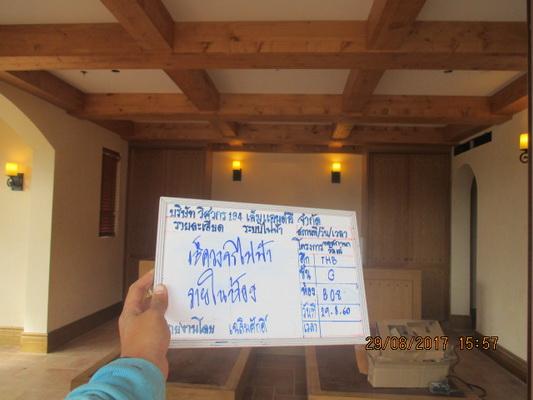 บริษัท วิศวกร 194 เอ็ม แอนด์ อี จำกัด
รายละเอียด ระบบไฟฟ้า สถานที่/วัน/เวลา
โครงการ
เช็ควงจรไฟฟ้า
ตึก THB
ภายในห้อง
ชั้น G
ห้อง B08
วันที่ 29.8.60
รายงานโดย เฉลิมศักดิ์
เวลา
29/08/2017 15:57